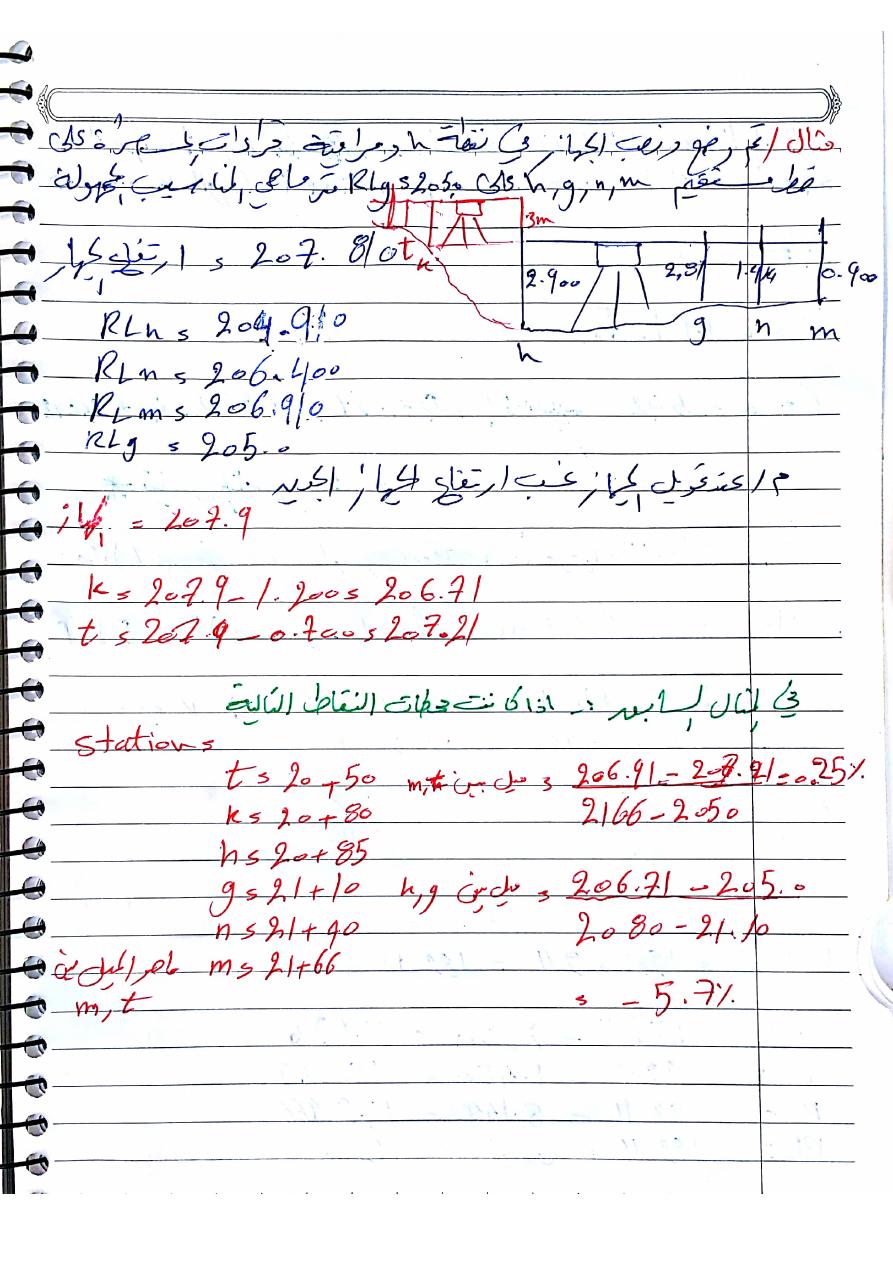 مثال / تم وضع ونصب الجهاز في نقطة h ومراقبة قراءات المسطرة على
خط مستقيم h, g, n, m على RLg = 205.0 متر ماهي المناسيب المجهولة
3m
ارتفاع الجهاز = 207.810
t
k
2.900
2,81
0.900
h
g
n
m
RLh = 204.910
RLn = 206.400
RLm = 206.910
RLg = 205.0
م / عند تحويل الجهاز ارتفاع الجهاز الجديد
الجهاز = 207.9
k = 207.9 - 1.200 = 206.71
t = 207.9 - 0.700 = 207.21
في المثال السابق :- اذا كانت محطات النقاط التالية
Stations
t = 20+50
ميل بين m,t = 206.91 - 207.21 = 0.25%
2166 - 2050
k = 20+80
h = 20+85
g = 21+10
ميل بين k,g = 206.71 - 205.0
2080 - 21.10
n = 21+40
ماهو الميل بين m = 21+66
m, t
= - 5.7%